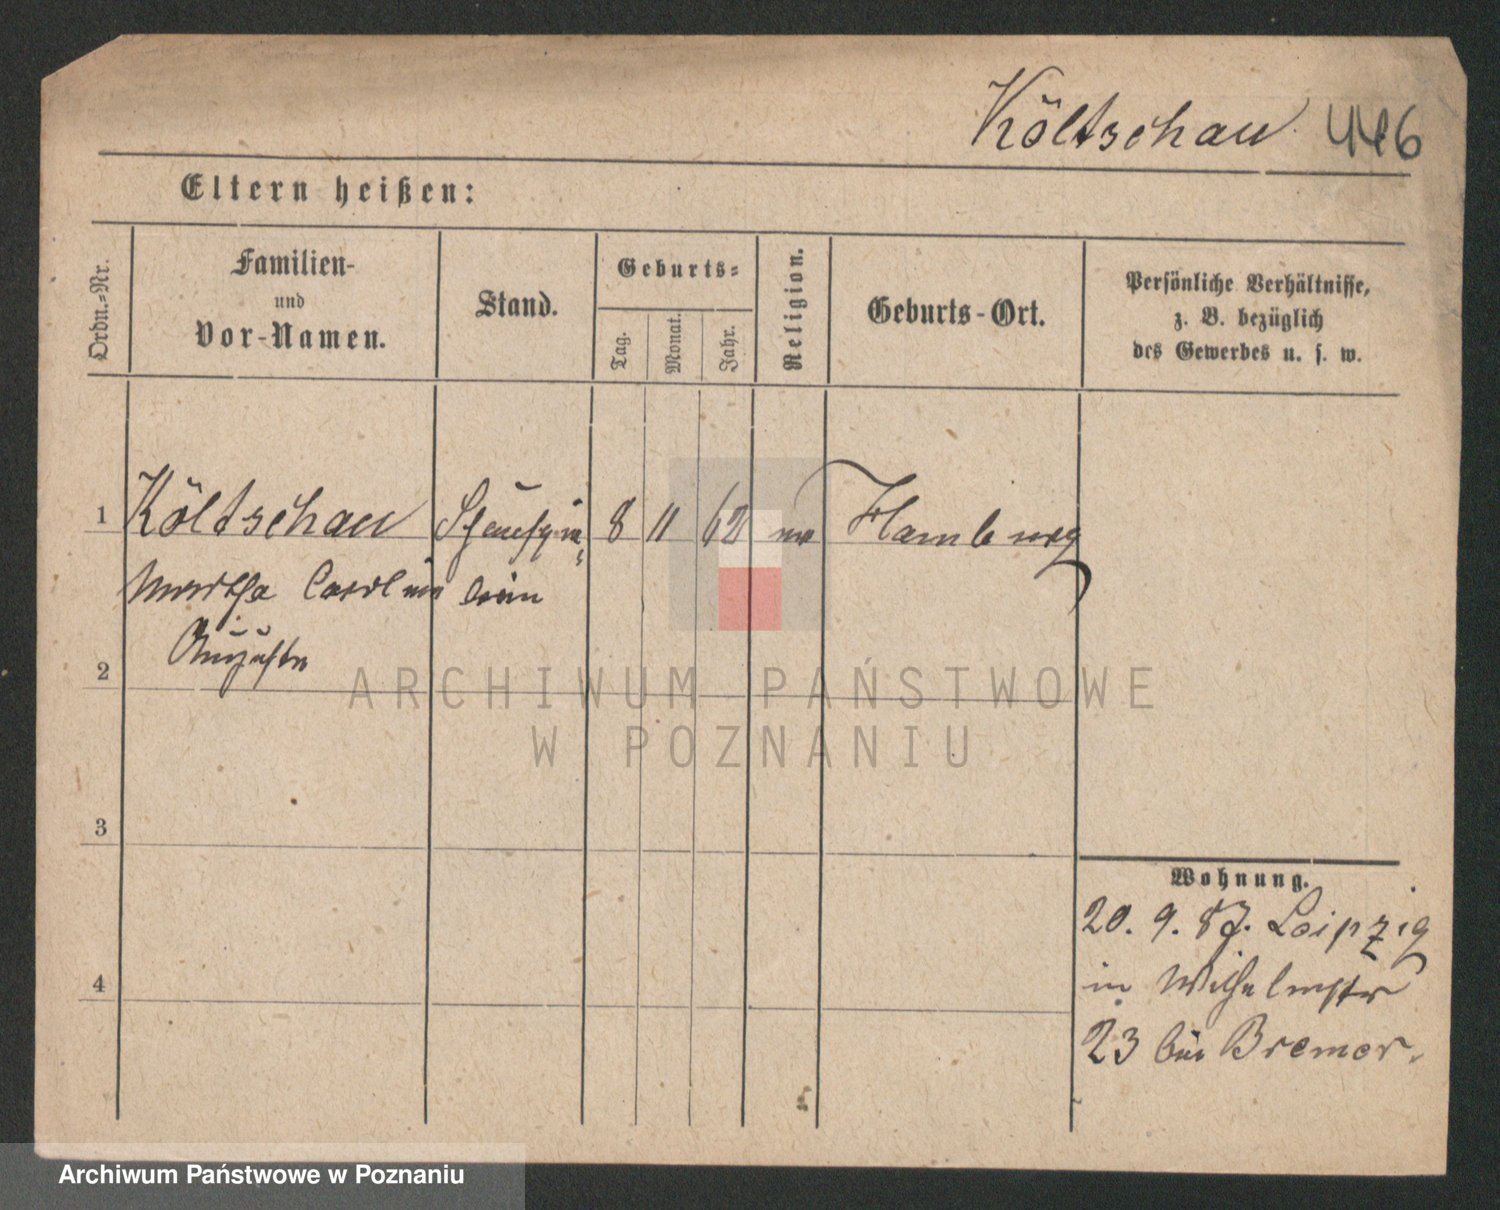 Költschau 446
Eltern heißen:
Ordn.-Nr.
Familien-
und
Vor-Namen.
Stand.
Geburts-
Tag.
Monat.
Jahr.
Religion.
Geburts-Ort.
Persönliche Verhältnisse,
z. B. bezüglich
des Gewerbes u. s. w.
1 Költschau Schauspie- 8 11 62 ev Hamburg
Martha Caroline lerin
Auguste
2
ARCHIWUM PAŃSTWOWE
W POZNANIU
3
4
Wohnung.
20. 9. 87. Leipzig
in Wilhelmstr
23 bei Bremer.
Archiwum Państwowe w Poznaniu